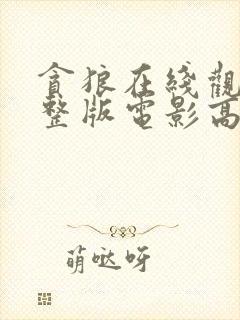 貪狼在綫觀
整版電影高
萌哒呀